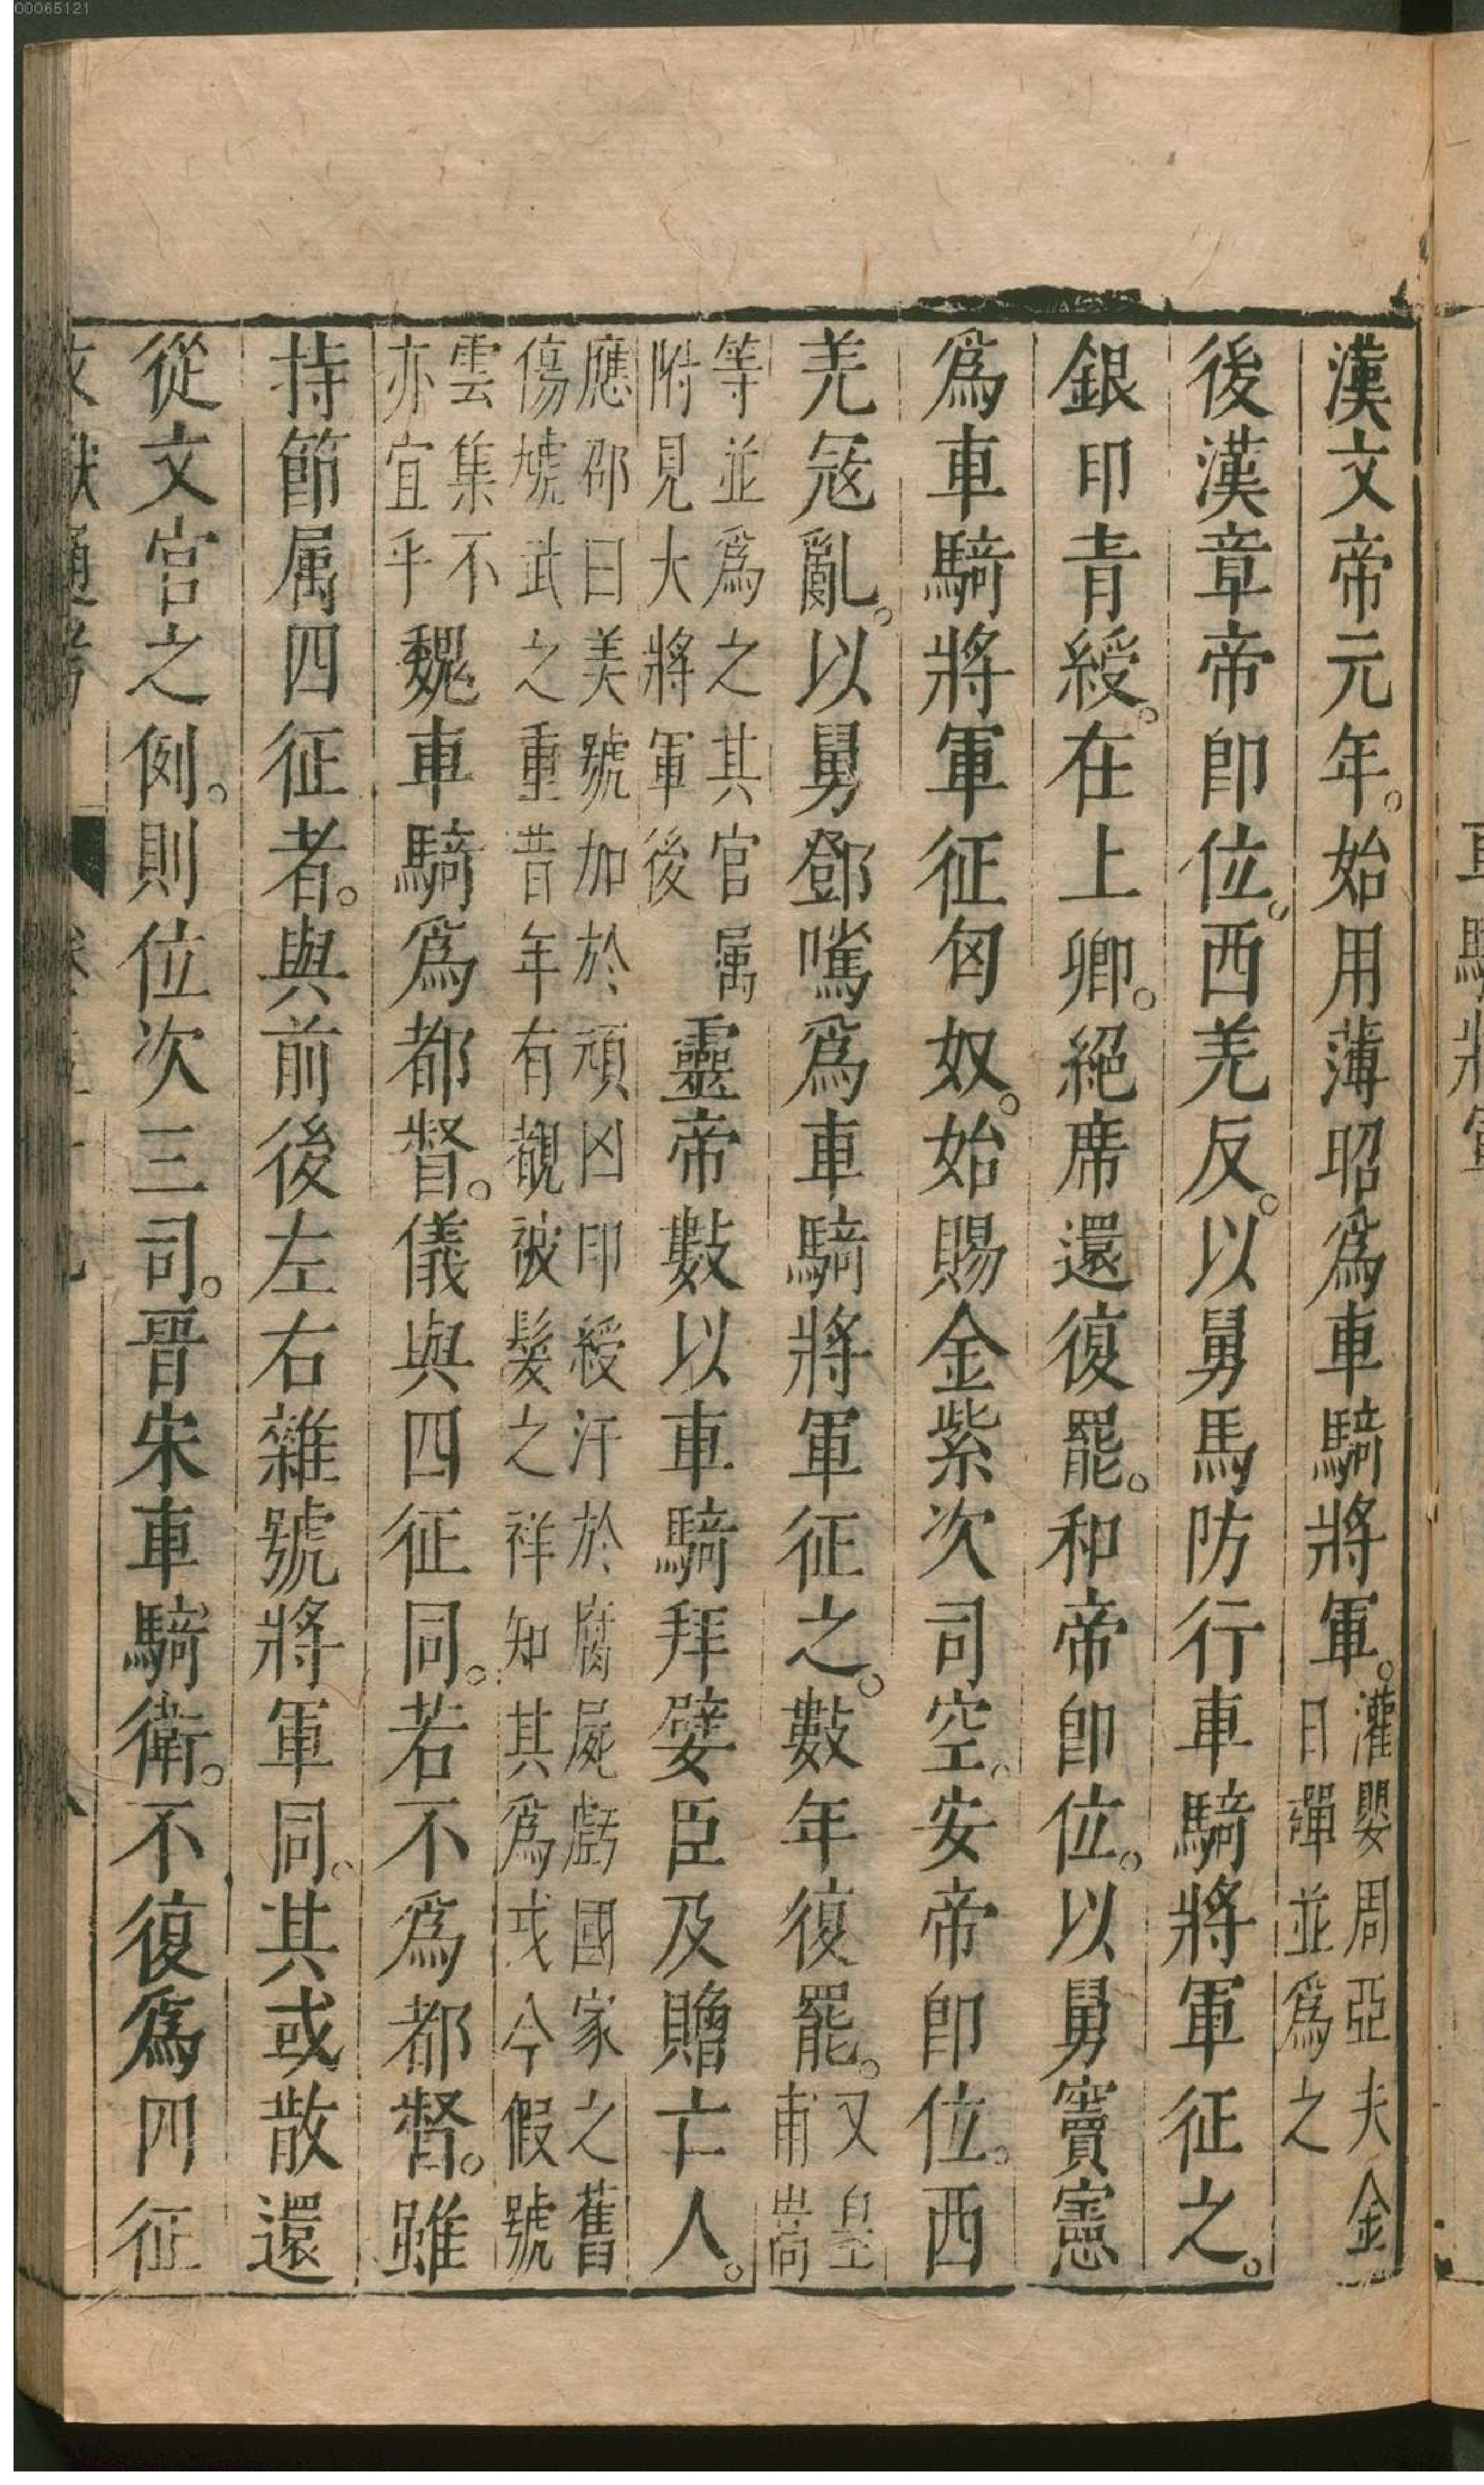 漢文帝元年。始用薄昭爲車騎將軍。灌嬰周亞夫金日磾並爲之
後漢章帝卽位。西羌反。以舅馬防行車騎將軍征之。
銀印青綬。在上卿。絕席還復罷。和帝卽位。以舅竇憲
爲車騎將軍征匈奴。始賜金紫次司空。安帝卽位。西
羌冦亂。以舅鄧騭爲車騎將軍征之。數年復罷。又皇甫嵩
等並爲之其官属附見大將軍後靈帝數以車騎拜嬖臣及贈亡人。
應邵曰美號加於頑凶印綬汙於腐屍戱國家之舊
傷虓武之重昔年有覩被髮之祥知其爲戎今假號
雲集不亦宜乎魏車騎爲都督。儀與四征同。若不爲都督。雖
持節属四征者。與前後左右雜號將軍同。其或散還
從文官之例。則位次三司。晉宋車騎衛。不復爲四征
00065121